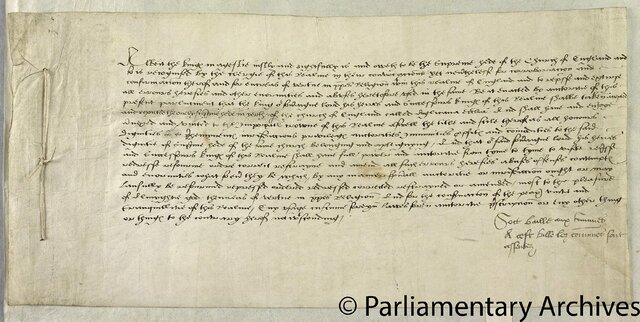 Albeit the kings magestie iustly and rightfully is and oweth to be the supreme hede of the Church of England and
so is recognised by the clergie of this Realme in their convocacions yet nevertheles for corroboracion and
confirmacion therof and for encreas of vertue in xpes Religion within this realme of England and to represse and extirpe
all errours heresies and other enormities and abuses heretofore used in the same Be it enacted by auctorite of this
present parliament that the king our soveraigne lord his heires and successours kings of this Realme shalbe taken accepted
and reputed the only supreme hede in erth of the church of England called Anglicana Ecclesia And shall have and enioye
annexed and united to the imperiall crowne of this Realme aswell the title and stile therof as all honours
dignities preemynences iurisdiccions privileges auctorities ymmunities profitts and commodities to the said
dignitie of supreme hede of the same church belonging and apperteyning And that our said soveraigne lord his heires
and successours kings of this realme shall have full power and auctorite from tyme to tyme to visite represse
redresse reforme order correct restrayne and amende all such errours heresies abuses offences contempts
and enormities what so ever they be which by any maner spirituall auctorite or iurisdiccion ought or may
laufully be reformed repressed ordered redressed corrected restrayned or amended most to the pleasure
of almighty god thencreas of vertue in xpes Religion And for the conservacion of the peax unite and
tranquillitie of this Realme Any usage custume foreyn lawes foreyn auctorite prescripcion or any other thing
or things to the contrary herof notwithstonding
Soit baille aux communes
A cest bille les communes sont
assentuz
© Parliamentary Archives